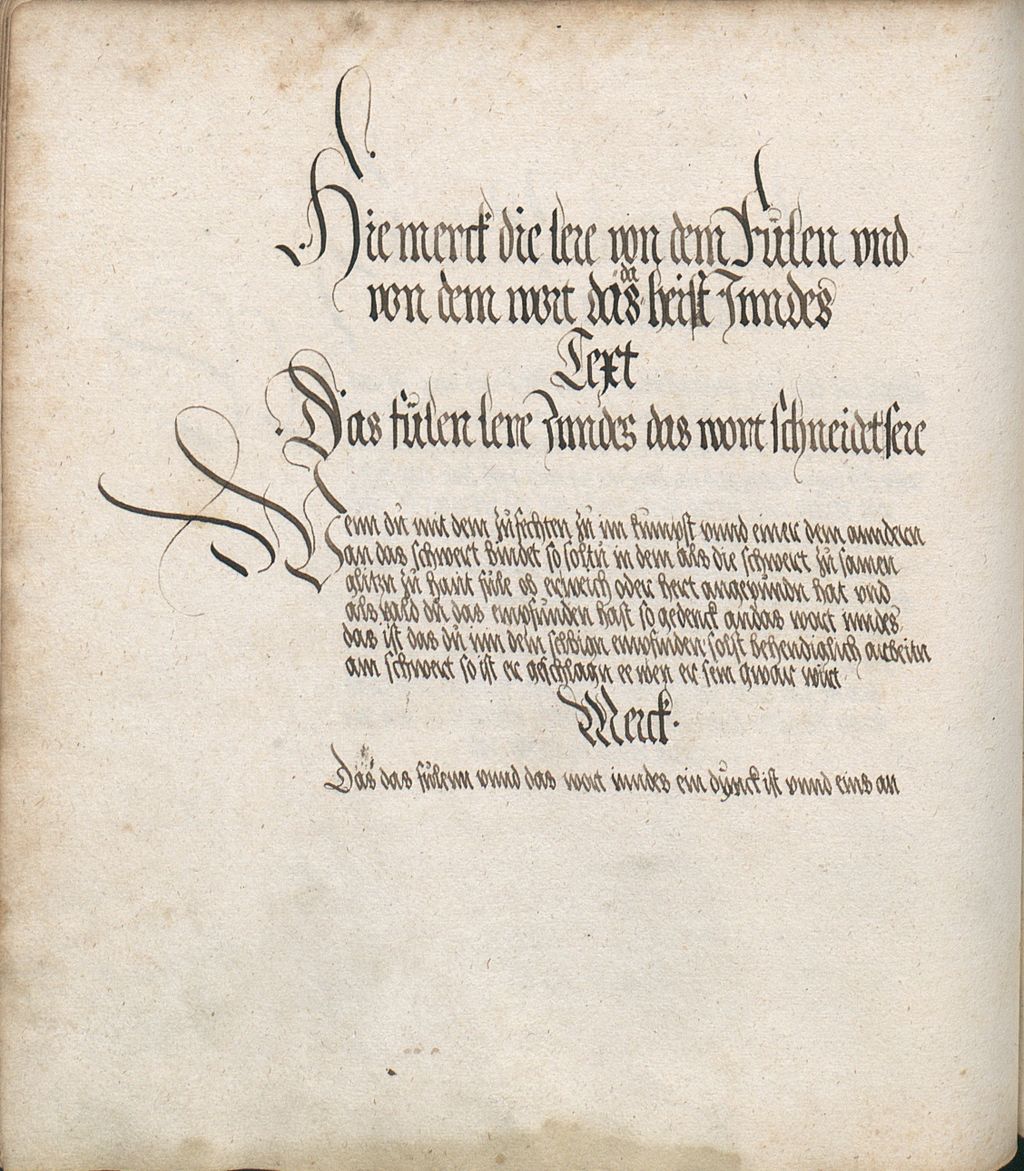 Hie merck die lere von dem Fülen und
von dem wort das da heist Inndes
Text
Das fülen lere Inndes das wort schneidet sere
Wenn dü mit dem zufechten zü im kumpst unnd einer dem anndern
an das schwert bindet so soltu in dem als die schwert zü samen
glitzn zü hant füle ob er weich oder hert angepündn hat und
als pald dü das empfünden hast so gedenck an das wort inndes
das ist das dü inn dem selbign empfinden solst behendiglich arbeitn
am schwert so ist er geschlagn er wen er sein gwar wirt
Merck.
Das das fülenn unnd das wort inndes ein dynck ist unnd eins an